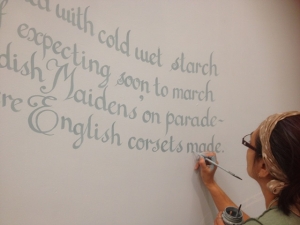 with cold wet starch
expecting soon to march
dish Maidens' on parade-
re English corsets made.